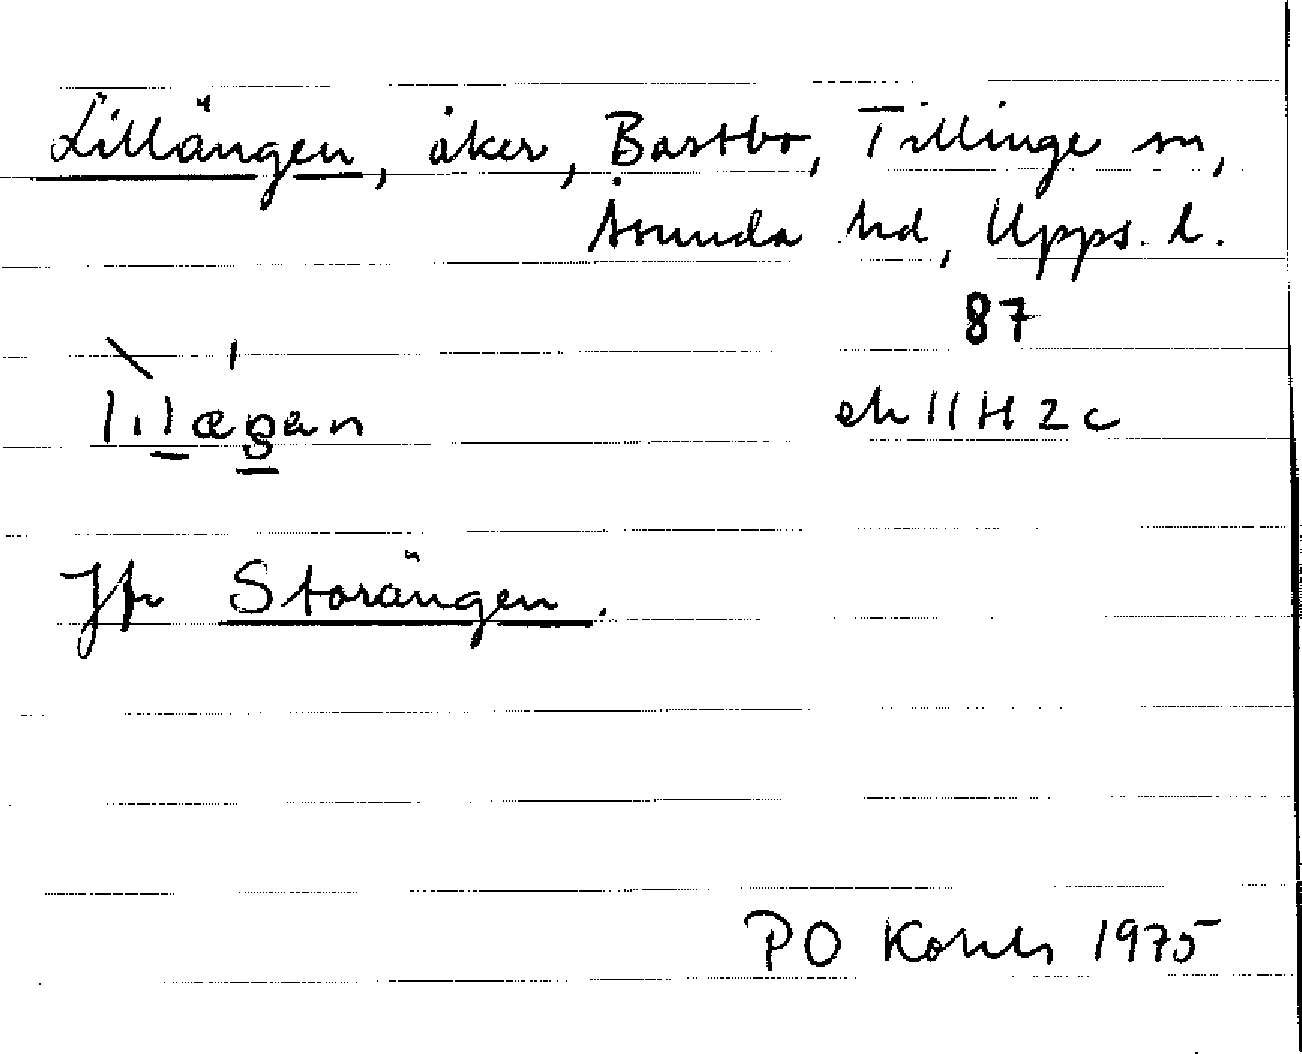 Lillängen, åker, Bastbo, Tillinge sn,
Åsunda hd, Upps. l.
87
ek 11 H 2 c
Jfr Storängen.
PO 1975